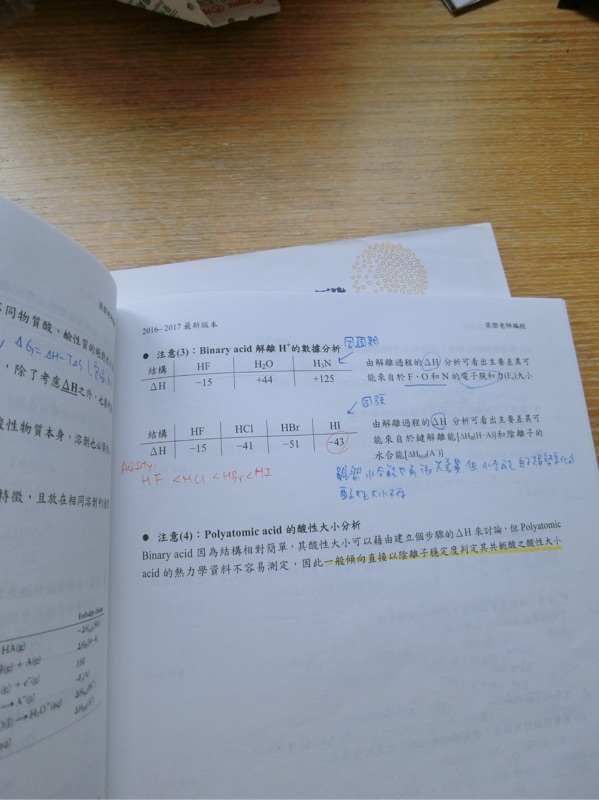 2016~2017 最新版本
梁傑老師編授
● 注意(3)：Binary acid 解離 H⁺的數據分析
同週期
結構 HF H₂O H₃N
ΔH −15 +44 +125
由解離過程的ΔH 分析可看出主要差異可
能來自於 F、O 和 N 的電子親和力(Eₐ)大小
同族
結構 HF HCl HBr HI
ΔH −15 −41 −51 −43
由解離過程的ΔH 分析可看出主要差異可
能來自於鍵解離能[ΔH_D(H−A)]和陰離子的
水合能[ΔH_hyd(A⁻)]
Acidity:
HF < HCl < HBr < HI
雖然水合能也有很大差異 但水合能
酸性大小不
● 注意(4)：Polyatomic acid 的酸性大小分析
Binary acid 因為結構相對簡單，其酸性大小可以藉由建立個步驟的ΔH 來討論，但 Polyatomic
acid 的熱力學資料不容易測定，因此一般傾向直接以陰離子穩定度判定其共軛酸之酸性大小
不同物質酸、鹼性質的
ΔG=ΔH−TΔS
，除了考慮ΔH之外，也
酸性物質本身，溶劑也
特徵，且放在相同溶劑中
Enthalpy
HA(g)
(g) + A(g)
(g) + e⁻(g)
→ A⁻(g)
→ H₃O⁺(aq)